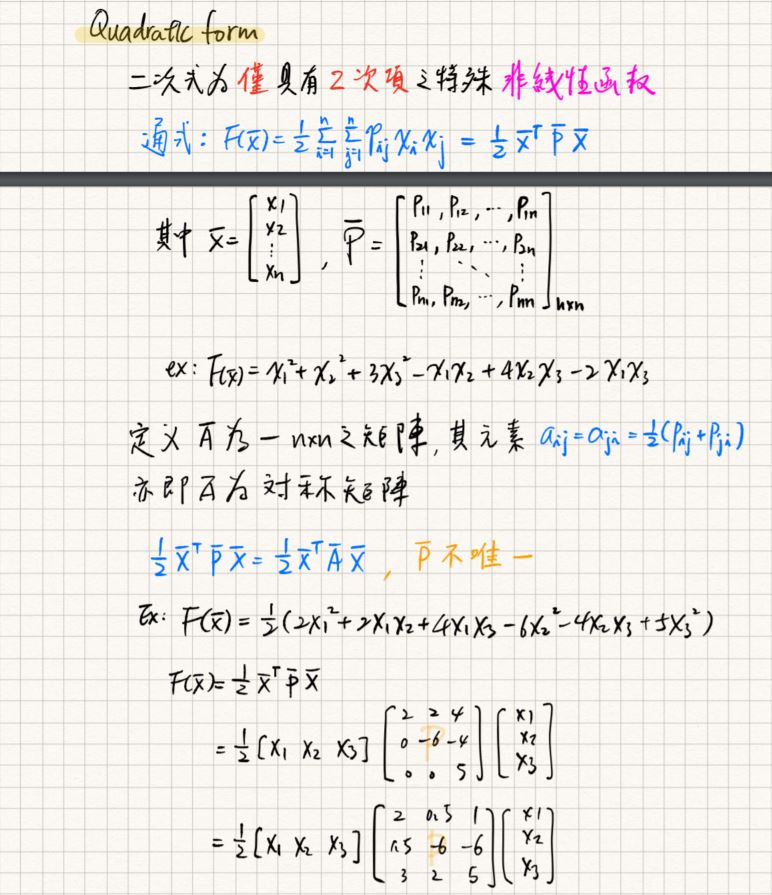 Quadratic form
二次式為僅具有2次項之特殊非線性函數
通式: F(x̄) = 1/2 Σ_{i=1}^{n} Σ_{j=1}^{n} P_{ij} x_i x_j = 1/2 x̄ᵀ P̄ x̄
其中 x̄ = [x1 x2 ⋮ xn], P̄ = [P11, P12, ⋯, P1n; P21, P22, ⋯, P2n; ⋮ ⋱ ⋮; Pn1, Pn2, ⋯, Pnn]_{n×n}
ex: F(x̄) = x1² + x2² + 3x3² - x1x2 + 4x2x3 - 2x1x3
定義 Ā 為一 n×n 之矩陣, 其元素 a_{ij} = a_{ji} = 1/2(P_{ij} + P_{ji})
亦即 Ā 為對稱矩陣
1/2 x̄ᵀ P̄ x̄ = 1/2 x̄ᵀ Ā x̄, P̄ 不唯一
Ex: F(x̄) = 1/2(2x1² + 2x1x2 + 4x1x3 - 6x2² - 4x2x3 + 5x3²)
F(x̄) = 1/2 x̄ᵀ P̄ x̄
= 1/2 [x1 x2 x3] [2 2 4; 0 -6 -4; 0 0 5] [x1; x2; x3]
= 1/2 [x1 x2 x3] [2 0.5 1; 1.5 -6 -6; 3 2 5] [x1; x2; x3]